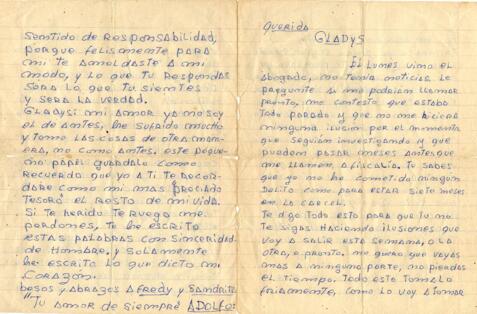 Querida
GLADYS
El lunes vino el
abogado, no tenia noticias. Le
pregunte si me podrian llamar
pronto, me contesto que estaba
todo parado y que no me hiciera
ninguna ilusion por el momento
que seguian investigando y que
pueden pasar meses antes que
me llamen a fiscalia. Tu sabes
que yo no he cometido ningun
delito como para estar siete meses
en la carcel.
Te digo todo esto para que tu no
te sigas haciendo ilusiones que
voy a salir esta semana, o la
otra, o pronto. no quero que vayas
mas a ninguna parte, no pierdas
el tiempo. Todo esto tomalo
friamente, como lo voy a tomar
sentido de responsabilidad,
porque felismente para
mi te amoldaste a mi
modo, y lo que tu respondas
sera lo que tu sientes
y sera la verdad.
Gladys: mi amor ya no soy
el de antes, he sufrido mucho
y tomo las cosas de otra man-
era, no como antes, este peque-
ño papel guardalo como
recuerdo que yo a ti te recor-
dare como mi mas preciado
tesoro el resto de mi vida.
Si te herido te ruego me
perdones, te he escrito
estas palabras con sinceridad
de hombre, y solamente
he escrito lo que dicto mi
corazon.
besos y abrazos a Fredy y Sandrita
Tu amor de siempre ADOLFO